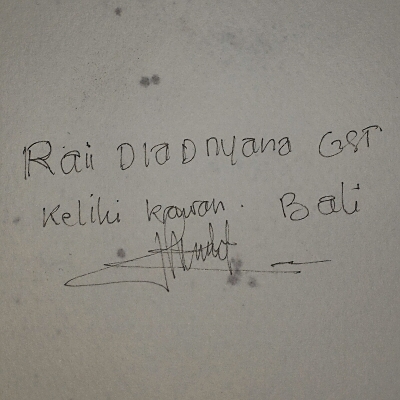 Rai DIaDnyana GST
Keliki Kawan. Bali